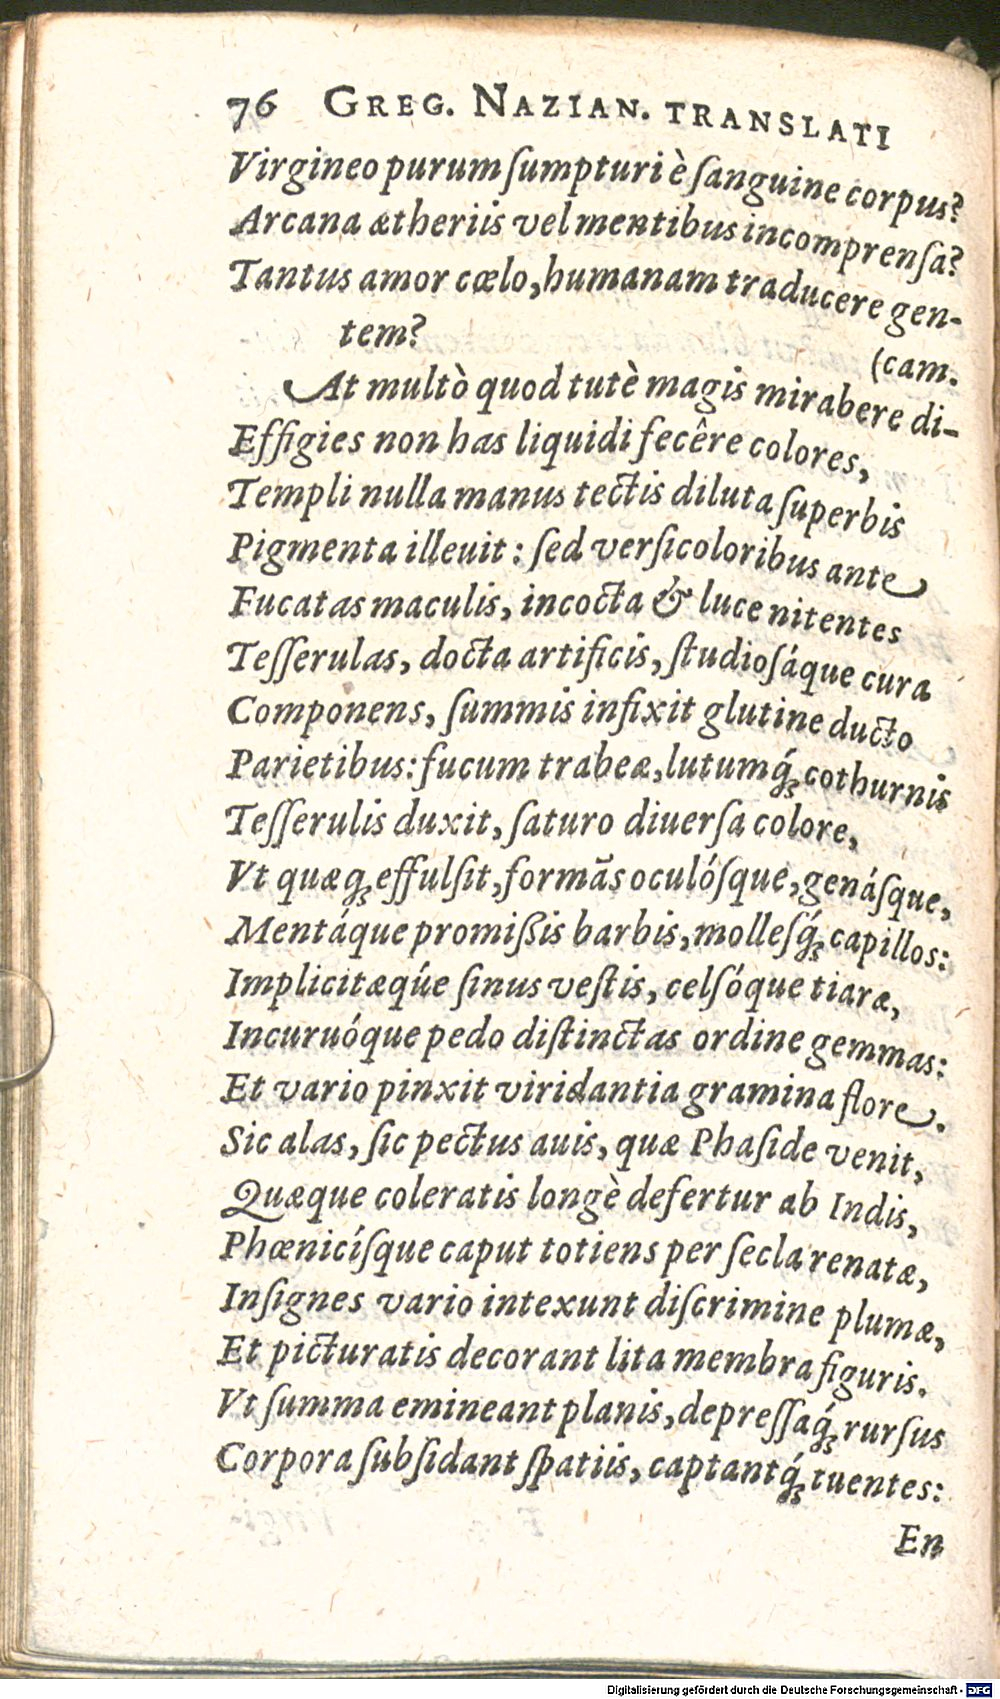 76 GREG. NAZIAN. TRANSLATI
Virgineo purum ſumpturi è ſanguine corpus?
Arcana ætheriis vel mentibus incomprenſa?
Tantus amor cœlo, humanam traducere gen-
tem?
(cam.
At multò quod tutè magis mirabere di-
Effigies non has liquidi fecêre colores,
Templi nulla manus tectis diluta ſuperbis
Pigmenta illeuit: ſed verſicoloribus ante
Fucatas maculis, incocta & luce nitentes
Teſſerulas, docta artificis, ſtudioſáque cura
Componens, ſummis infixit glutine ducto
Parietibus: fucum trabeæ, lutumq́; cothurnis
Teſſerulis duxit, ſaturo diuerſa colore,
Vt quæq; effulſit, formãs oculóſque, genáſque,
Mentáque promißis barbis, molleſq́; capillos:
Implicitæq́ue ſinus veſtis, celſóque tiaræ,
Incuruóque pedo diſtinctas ordine gemmas:
Et vario pinxit viridantia gramina flore.
Sic alas, ſic pectus auis, quæ Phaſide venit,
Quæque coleratis longè defertur ab Indis,
Phœnicíſque caput totiens per ſecla renatæ,
Inſignes vario intexunt diſcrimine plumæ,
Et picturatis decorant lita membra figuris.
Vt ſumma emineant planis, depreſſaq́; rurſus
Corpora ſubſidant ſpatiis, captantq́; tuentes:
En
Digitalisierung gefördert durch die Deutsche Forschungsgemeinschaft - DFG